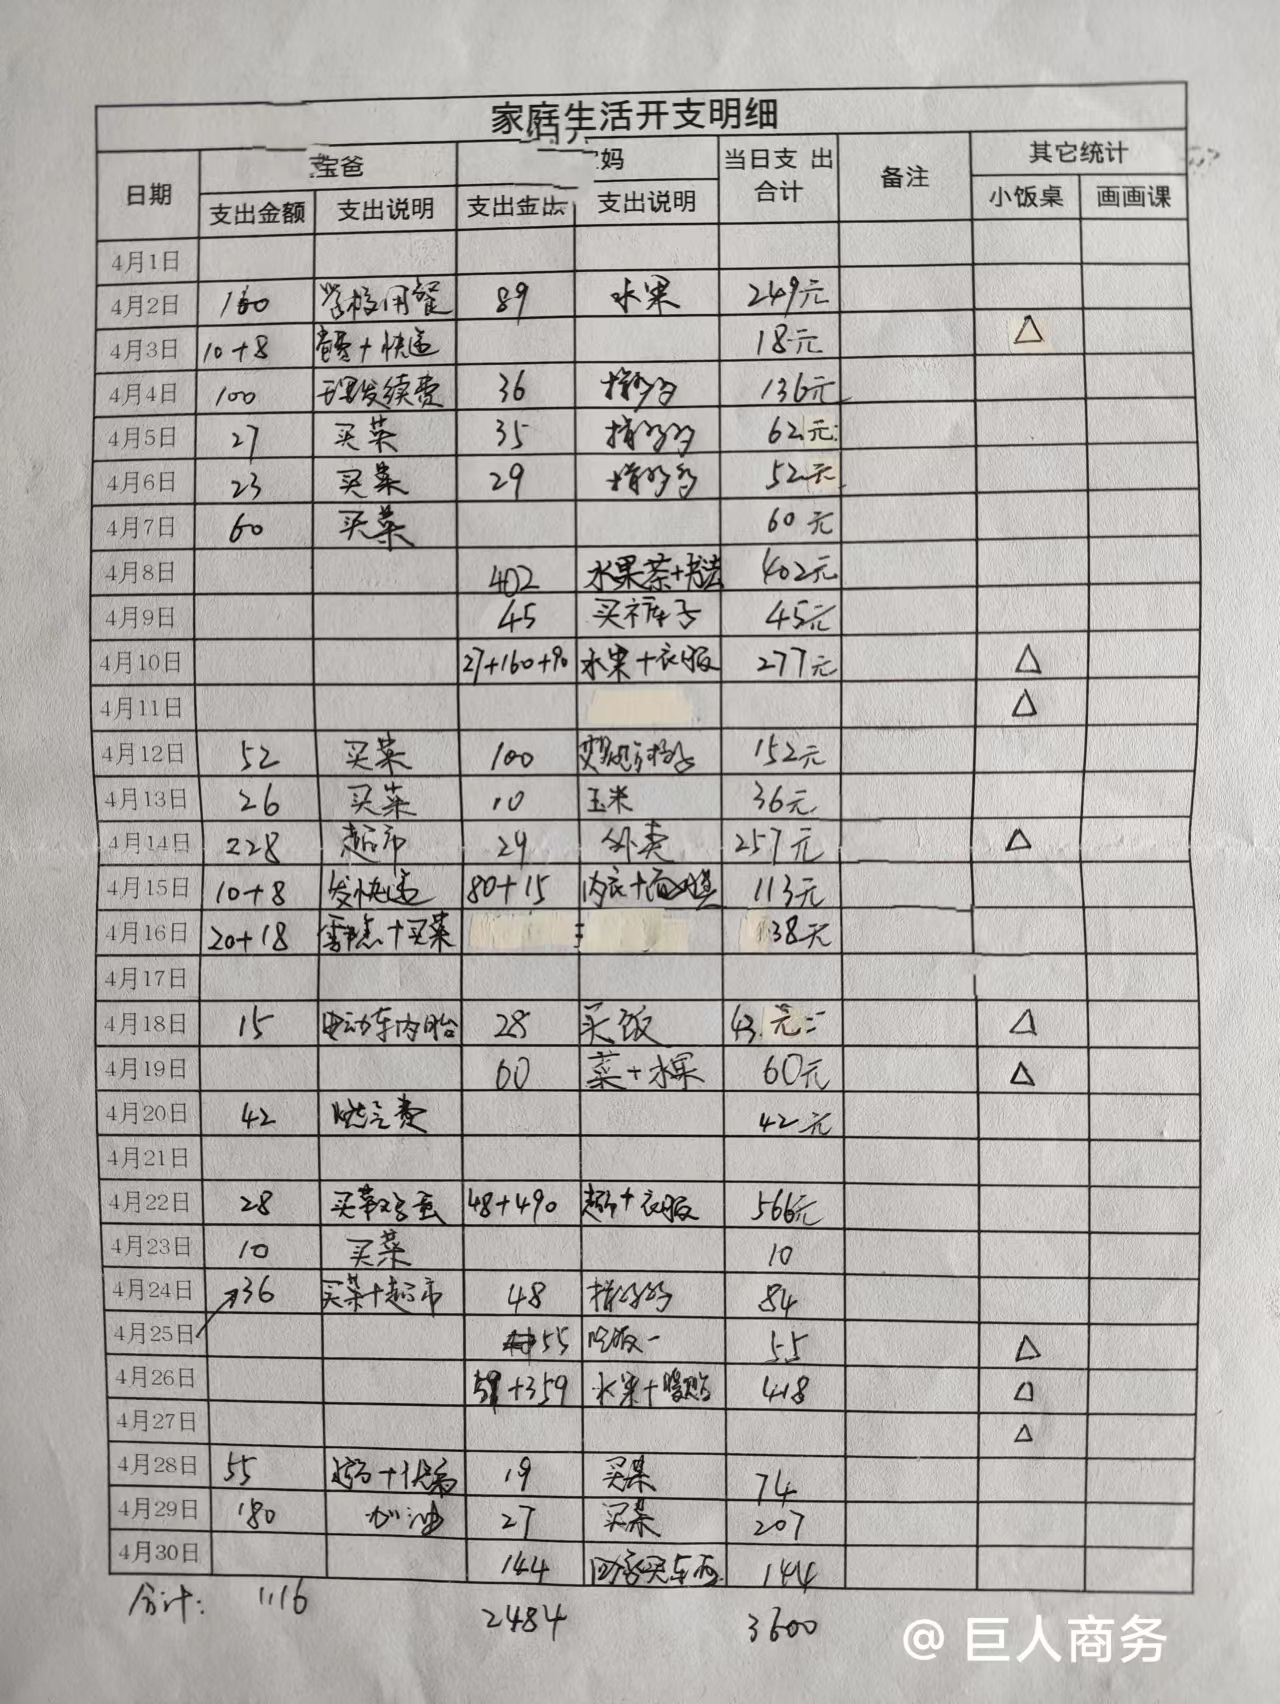 家庭生活开支明细
日期 宝爸 妈 当日支 出 合计 备注 其它统计
支出金额 支出说明 支出金 支出说明 小饭桌 画画课
4月1日
4月2日 160 学校用餐 89 水果 249元
4月3日 10+8 + 快递 18元 △
4月4日 100 续费 36 拼多多 136元
4月5日 27 买菜 35 拼多多 62元
4月6日 23 买菜 29 拼多多 52元
4月7日 60 买菜 60元
4月8日 402 水果茶+书法 402元
4月9日 45 买裤子 45元
4月10日 27+160+90 水果+衣服 277元 △
4月11日 △
4月12日 52 买菜 100 152元
4月13日 26 买菜 10 玉米 36元
4月14日 228 超市 29 外卖 257元 △
4月15日 10+8 发快递 80+15 内衣+面 113元
4月16日 20+18 +买菜 38元
4月17日
4月18日 15 电动车内胎 28 买饭 43元 △
4月19日 60 菜+水果 60元 △
4月20日 42 燃气费 42元
4月21日
4月22日 28 买菜鸡蛋 48+490 超市+衣服 566元
4月23日 10 买菜 10
4月24日 36 买菜+超市 48 拼多多 84
4月25日 55 吃饭 55 △
4月26日 59+359 水果+ 418 △
4月27日 △
4月28日 55 19 买菜 74
4月29日 180 加油 27 买菜 207
4月30日 144 144
合计: 1116 2484 3600
@ 巨人商务